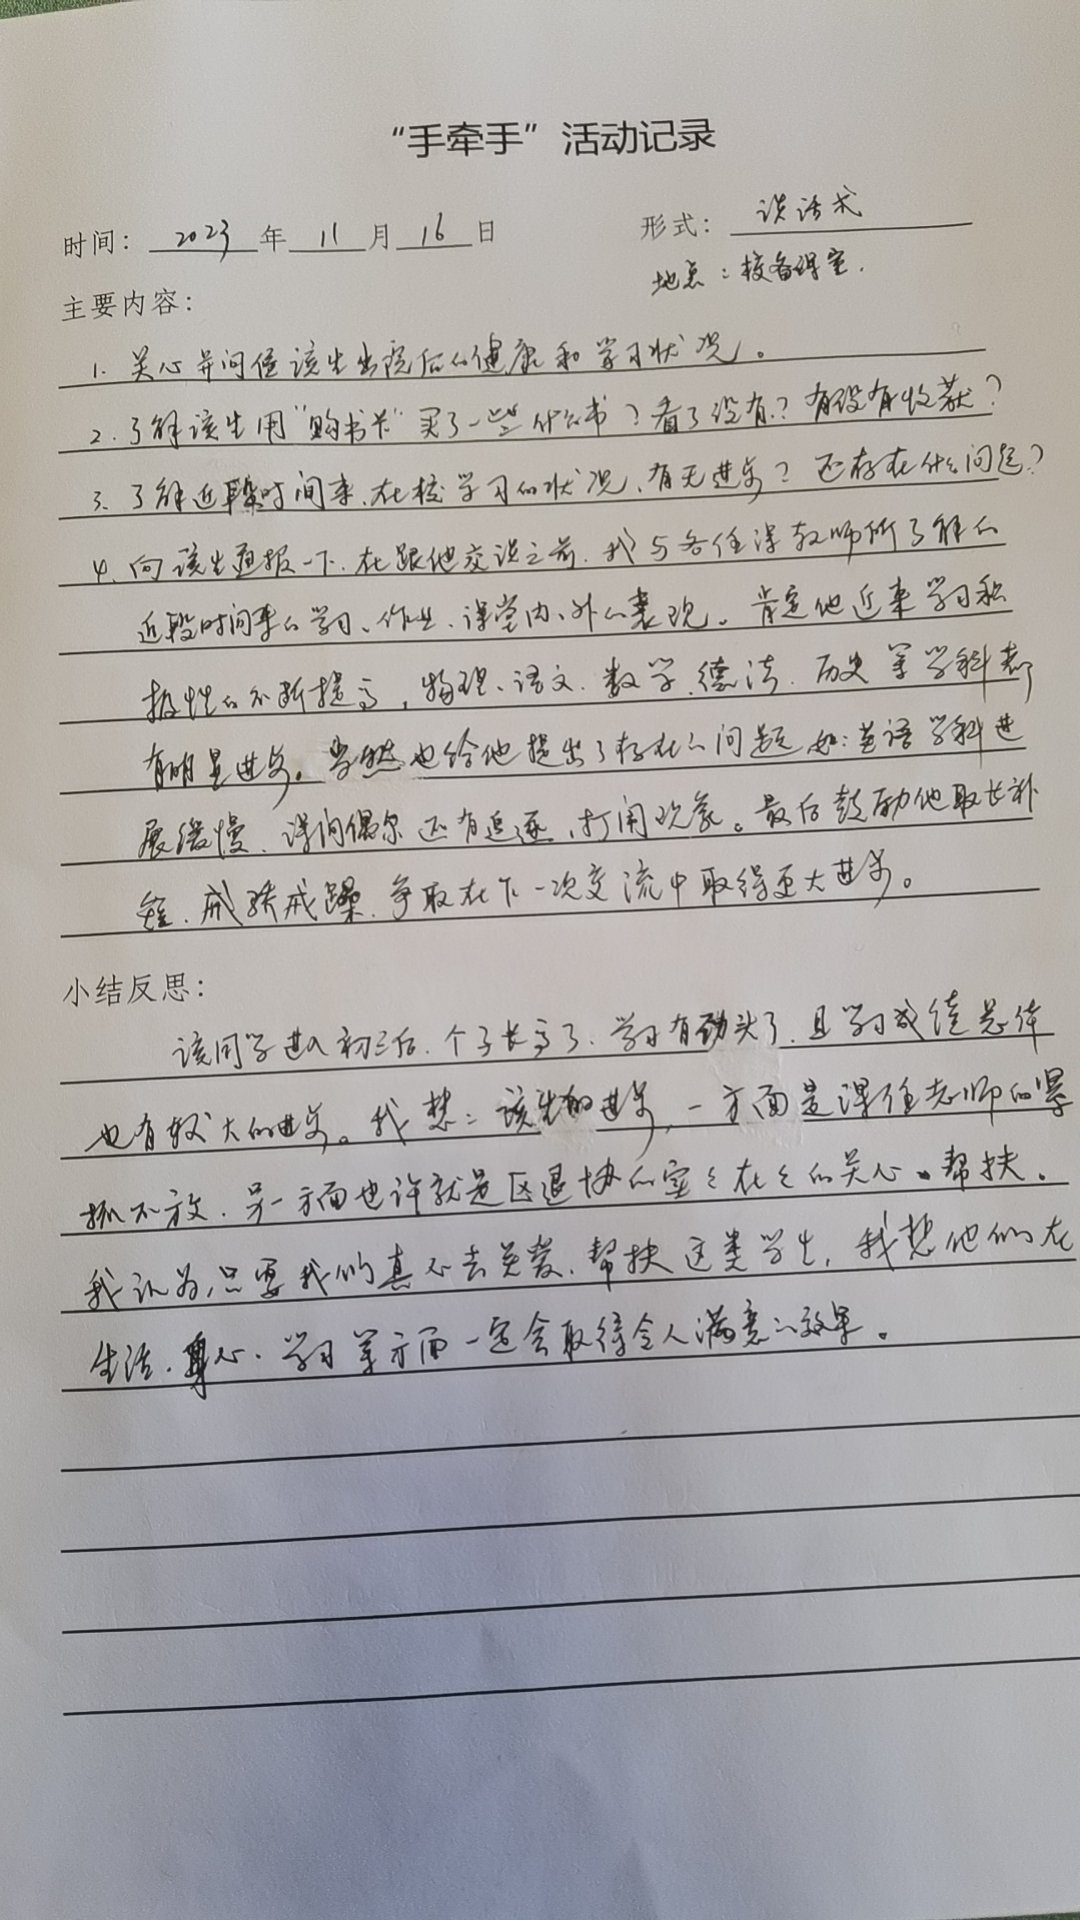 “手牵手”活动记录
时间：2023年11月16日 形式：谈话式
地点：校备课室.
主要内容：
1. 关心并问侯该生出院后的健康和学习状况。
2. 了解该生用“购书卡”买了一些什么书？看了没有？有没有收获？
3. 了解近段时间来、在校学习的状况、有无进步？还存在什么问题？
4. 向该生通报一下、在跟他交谈之前、我与各任课教师所了解的
近段时间来的学习、作业、课堂内、外的表现。肯定他近来学习积
极性的不断提高，物理、语文、数学、德法、历史等学科都
有明显进步。当然也给他提出了存在的问题如：英语学科进
展缓慢、课间偶尔还有追逐、打闹现象。最后鼓励他取长补
短、戒骄戒躁、争取在下一次交流中取得更大进步。
小结反思：
该同学进入初三后、个子长高了、学习有劲头了、且学习成绩总体
也有较大的进步。我想：该生的进步，一方面是课任老师的紧
抓不放、另一方面也许就是区退协的实实在在的关心、帮扶。
我认为，只要我们真心去关爱、帮扶这类学生，我想他们在
生活、身心、学习等方面一定会取得令人满意的效果。